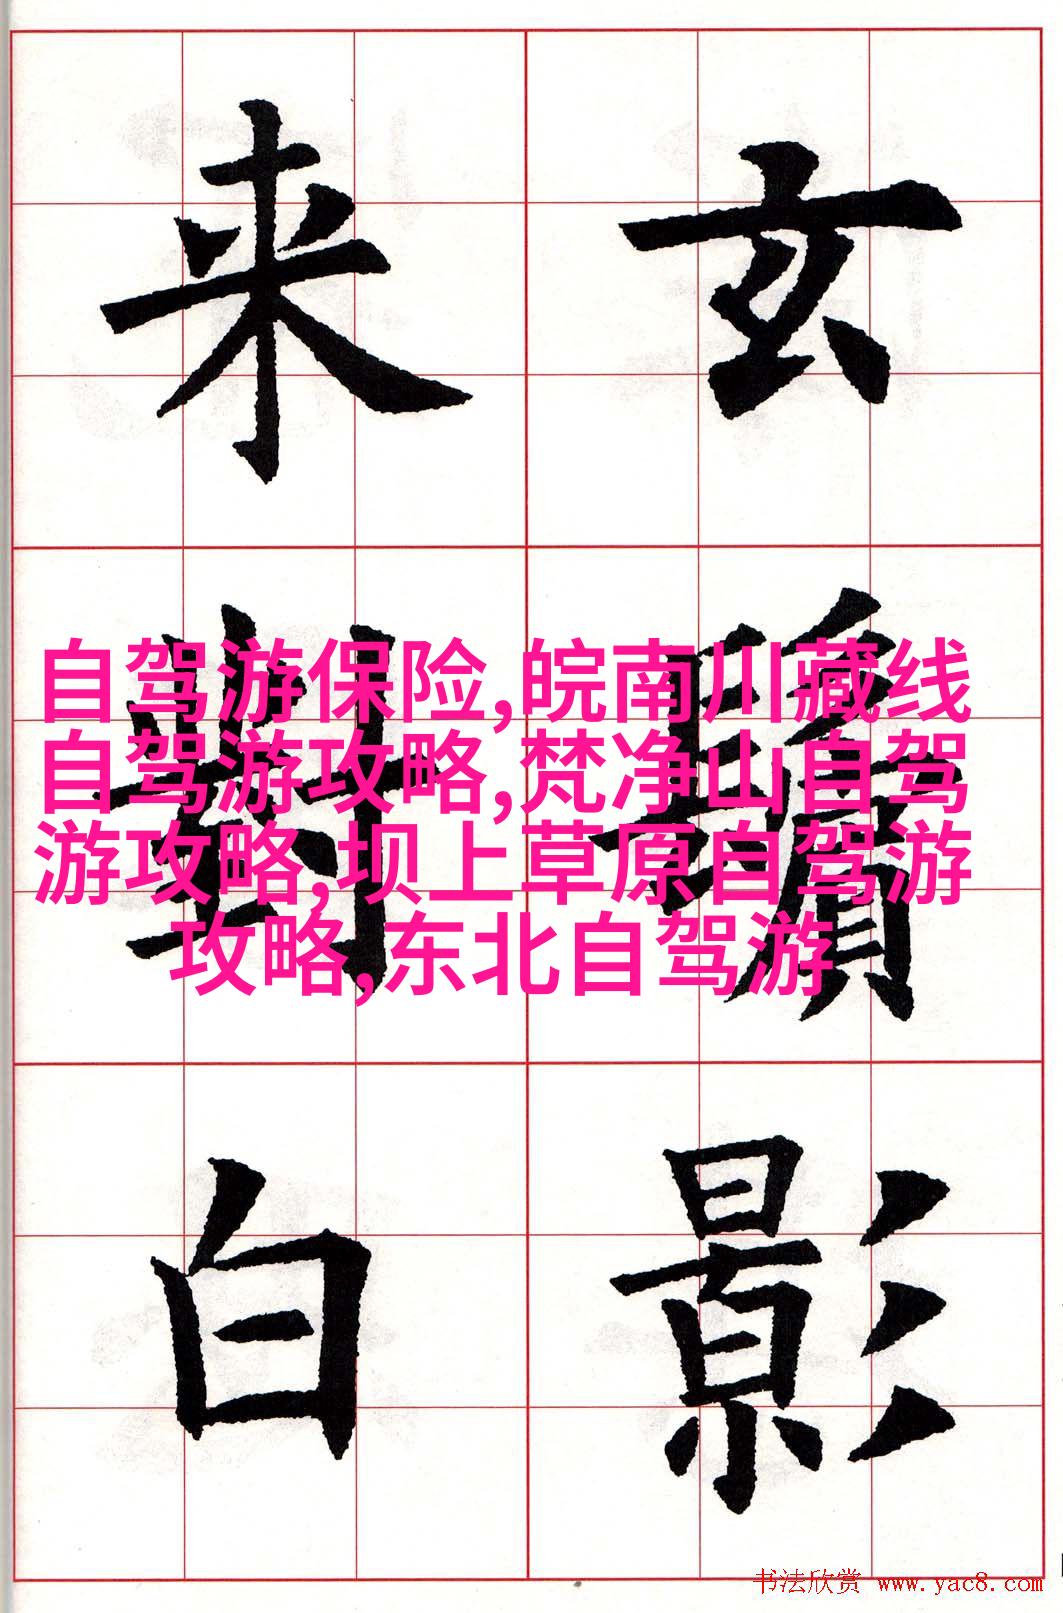 玄鬢影
来對白
自驾游保险,皖南川藏线
自驾游攻略,梵净山自驾
游攻略,坝上草原自驾游
攻略,东北自驾游
书法欣赏 www.yac8.com